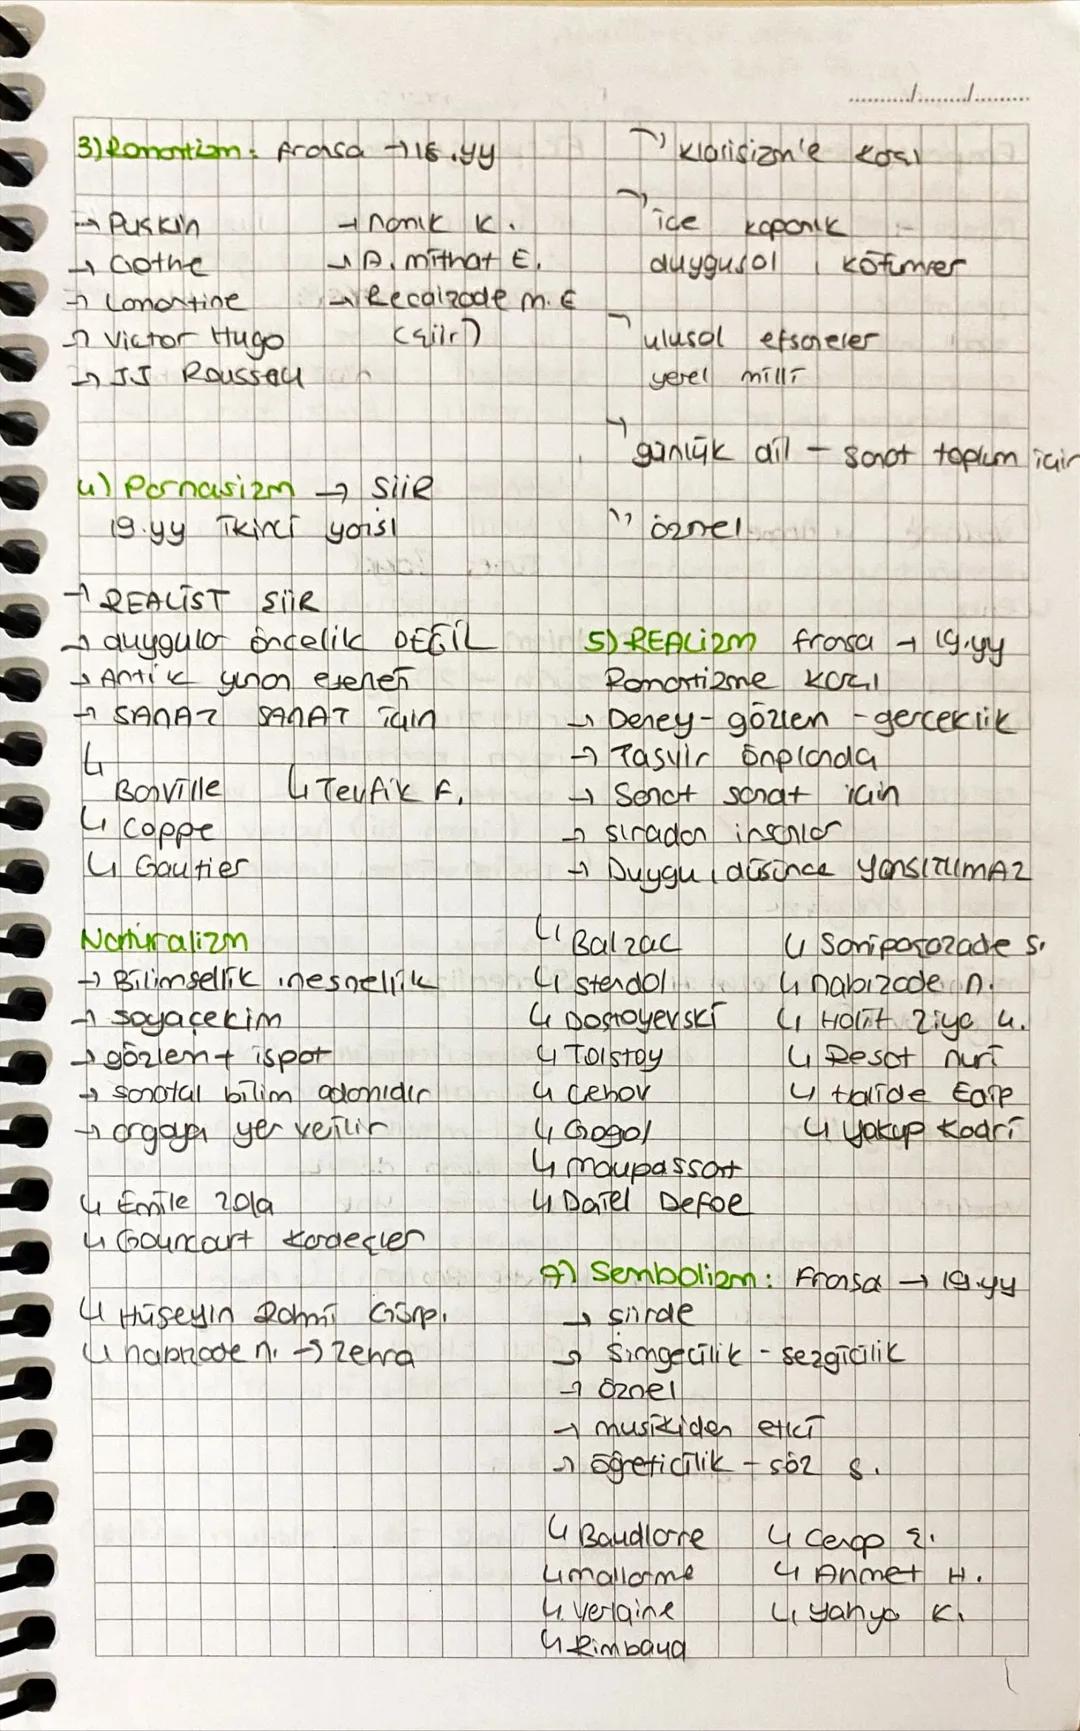 3) Romantizm: Fransa → 18.yy
→ Puskin
→ Gothe
→ Lamartine
→ Victor Hugo
→ JJ Roussau
→ Namık K.
→ A. mithat E.
→ Recaizade m. E
(şiir)
→ klasisizm'e karşı
→ içe kapanık
duygusal, kötümser
→ ulusal efsaneler
yerel milli
→ günlük dil - sanat toplum için
→ öznel
4) Parnasizm → şiir
19.yy ikinci yarısı
→ REALİST şiir
→ duygular öncelik DEĞİL
→ Antik yunan
→ SANAT SANAT için
↳ Banville
↳ Coppe
↳ Gautier
↳ Tevfik F.
5) REALizm Fransa → 19.yy
Romantizme karşı
→ Deney - gözlem - gerçeklik
→ Tasvir önplanda
→ Sanat sanat için
→ sıradan insanlar
→ Duygu, düşünce yansıtılmAz
↳ Balzac
↳ stendal
↳ Dostoyevski
↳ Tolstoy
↳ Çehov
↳ Gogol
↳ maupassant
↳ Daiel Defoe
↳ Samipaşazade S.
↳ nabizade n.
↳ Halit Ziya U.
↳ Reşat nuri
↳ Halide Edip
↳ Yakup Kadri
Naturalizm
→ Bilimsellik, nesnellik
→ soyaçekim
→ gözlem + ispat
→ sanatal bilim adamıdır
→ argoya yer verilir
↳ Emile Zola
↳ Gouncourt kardeşler
↳ Hüseyin Rahmi Gürp.
↳ nabizade n. → Zehra
7) Sembolizm: Fransa → 19.yy
→ şiirde
→ Simgecilik - sezgicilik
→ öznel
→ musikiden etki
→ öğreticilik - söz s.
↳ Baudlare
↳ mallarme
↳ Verlaine
↳ Rimbaud
↳ Cenap Ş.
↳ Ahmet H.
↳ Yahya K.